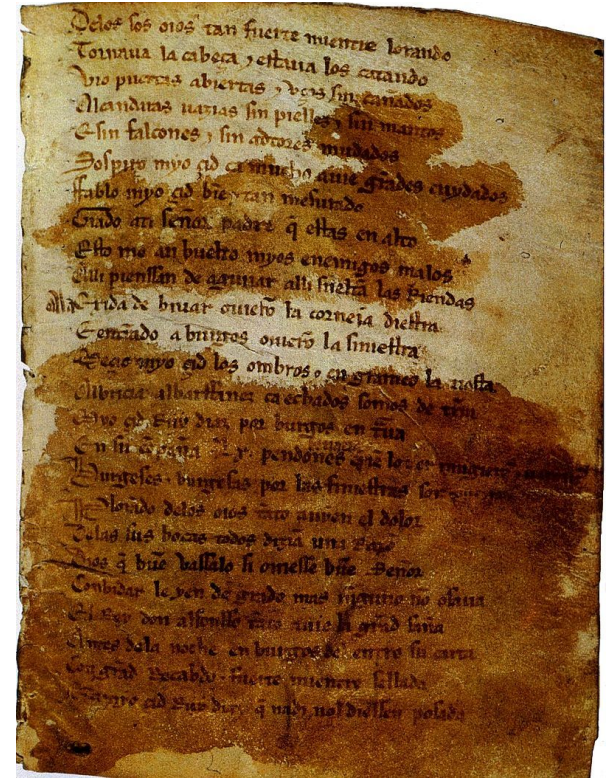 Delos sos oios tan fuerte mientre lorando
Tornaua la cabeça ⁊ estaua los catando
Vio puertas abiertas ⁊ vços sin cañados
Alcandaras uazias sin pielles ⁊ sin mantos
E sin falcones ⁊ sin adtores mudados
Sospiro myo çid ca mucho auie grãdes cuydados
ffablo myo çid biẽ ⁊ tan mesurado
Grado ati señor padre q̃ estas en alto
Esto me an buelto myos enemigos malos
Alli pienssan de aguiiar alli sueltã las Riendas
Ala Exida de biuar ouierõ la corneia diestra
E entrãdo a burgos ouierõ la siniestra
Meçio myo çid los ombros ⁊ engrameo la tiesta
Albricia albarffanez ca echados somos de tr̃ra
Myo çid Ruy diaz por burgos en traua
En su cõpaña .Lx. pendones
Burgeses ⁊ burgesas por las finiestras son
Plorãdo delos oios tãto auyen el dolor
Delas sus bocas todos dizian una Razõ
Dios q̃ buẽ vassalo si ouiesse buẽ Señor
Conbidar le yen de grado mas ninguno no osaua
El Rey don alfonsso tãto auie la grãd saña
Antes dela noche en burgos del entro su carta
Con grãd Recabdo ⁊ fuerte mientre sellada
çid Ruy diaz q̃ nadi nol diessen posada